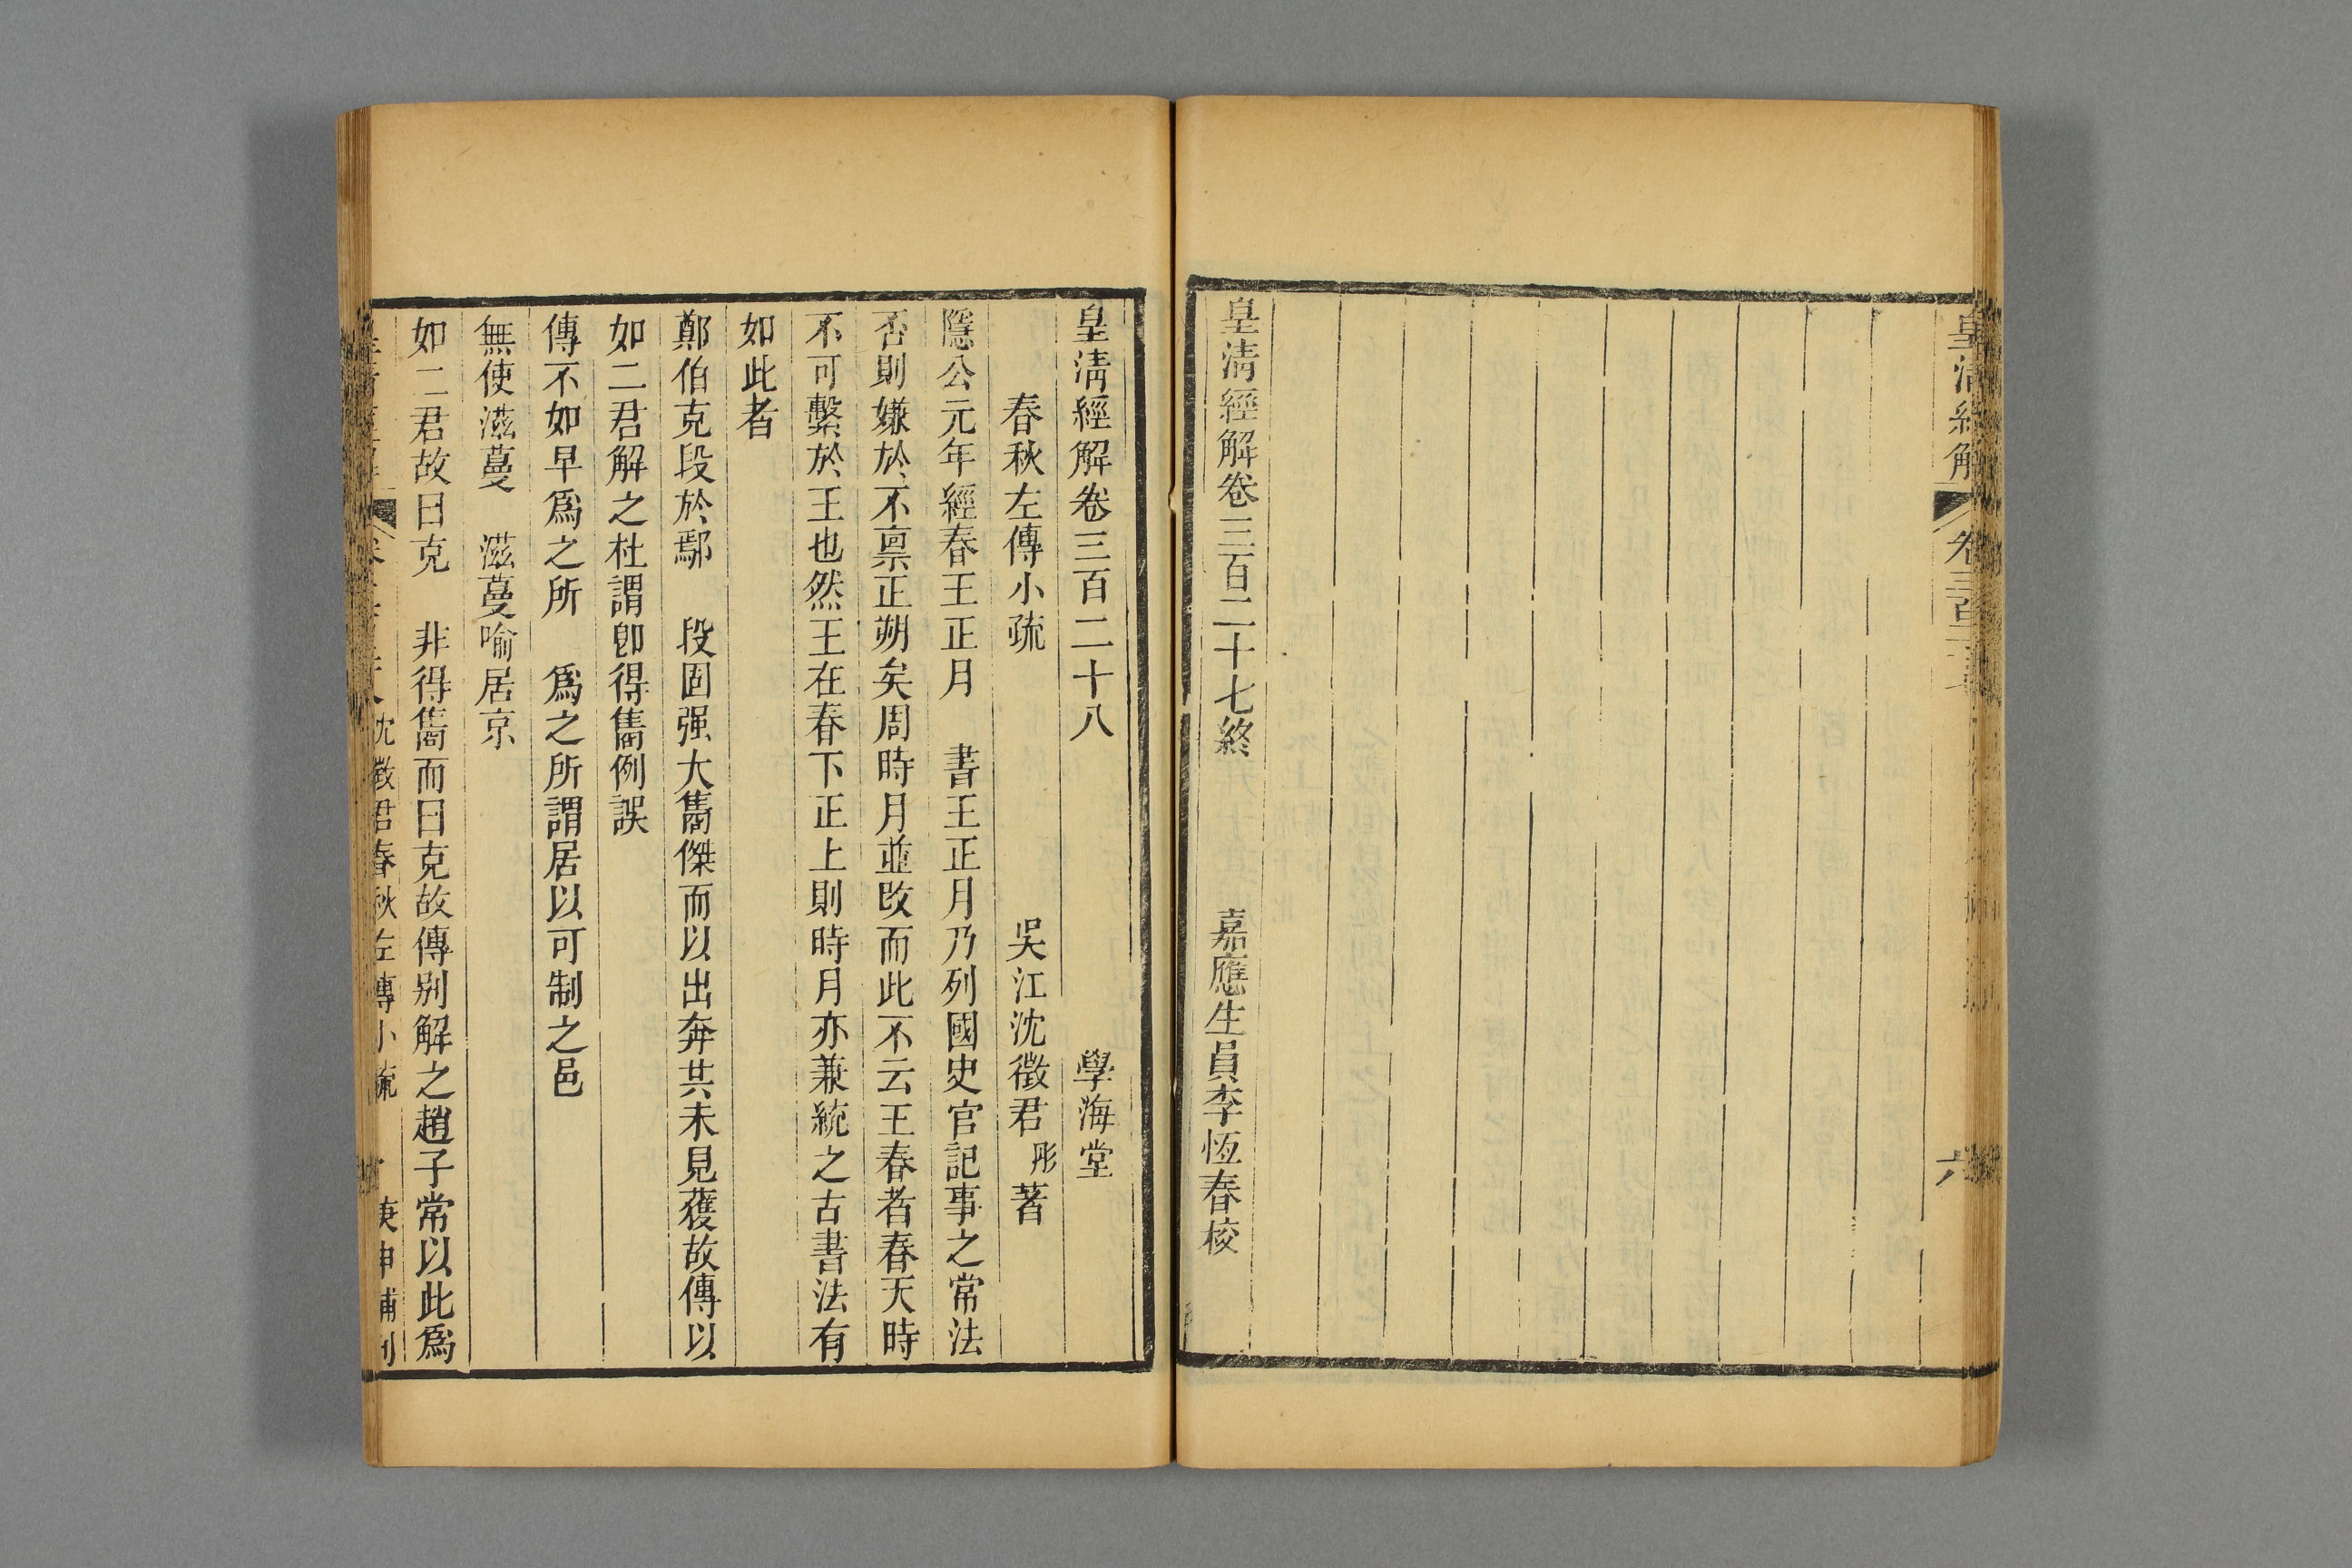 皇清經解
六
皇清經解卷三百二十七終　嘉應生員李恆春校
皇清經解卷三百二十八　學海堂
春秋左傳小疏　吳江沈徵君彤著
隱公元年經春王正月　書王正月乃列國史官記事之常法
否則嫌於不稟正朔矣周時月並改而此不云王春者春天時
不可繫於王也然王在春下正上則時月亦兼統之古書法有
如此者
鄭伯克段於鄢　段固强大儁傑而以出奔共未見獲故傳以
如二君解之杜謂卽得儁例誤
傳不如早爲之所　爲之所謂居以可制之邑
無使滋蔓　滋蔓喻居京
如二君故曰克　非得儁而曰克故傳别解之趙子常以此爲
沈徵君春秋左傳小疏
庚申補刊